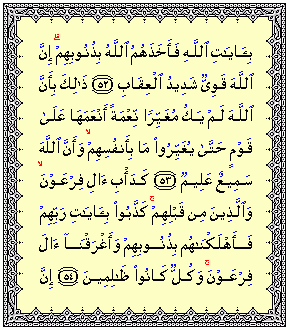 بِـَٔايَٰتِ ٱللَّهِ فَأَخَذَهُمُ ٱللَّهُ بِذُنُوبِهِمْ ۗ إِنَّ
ٱللَّهَ قَوِىٌّ شَدِيدُ ٱلْعِقَابِ ﴿٥٢﴾ ذَٰلِكَ بِأَنَّ
ٱللَّهَ لَمْ يَكُ مُغَيِّرًا نِّعْمَةً أَنْعَمَهَا عَلَىٰ
قَوْمٍ حَتَّىٰ يُغَيِّرُوا۟ مَا بِأَنفُسِهِمْ ۙ وَأَنَّ ٱللَّهَ
سَمِيعٌ عَلِيمٌ ﴿٥٣﴾ كَدَأْبِ ءَالِ فِرْعَوْنَ ۙ
وَٱلَّذِينَ مِن قَبْلِهِمْ ۚ كَذَّبُوا۟ بِـَٔايَٰتِ رَبِّهِمْ
فَأَهْلَكْنَٰهُم بِذُنُوبِهِمْ وَأَغْرَقْنَآ ءَالَ
فِرْعَوْنَ ۚ وَكُلٌّ كَانُوا۟ ظَٰلِمِينَ ﴿٥٤﴾ إِنَّ